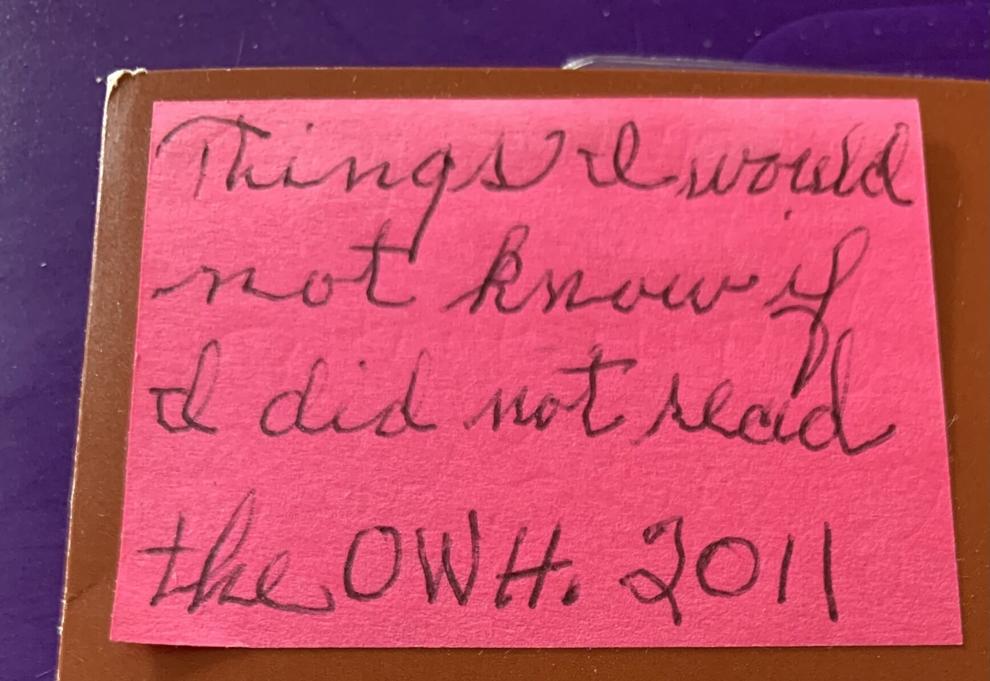 Things I would
not know if
I did not read
the OWH. 2011